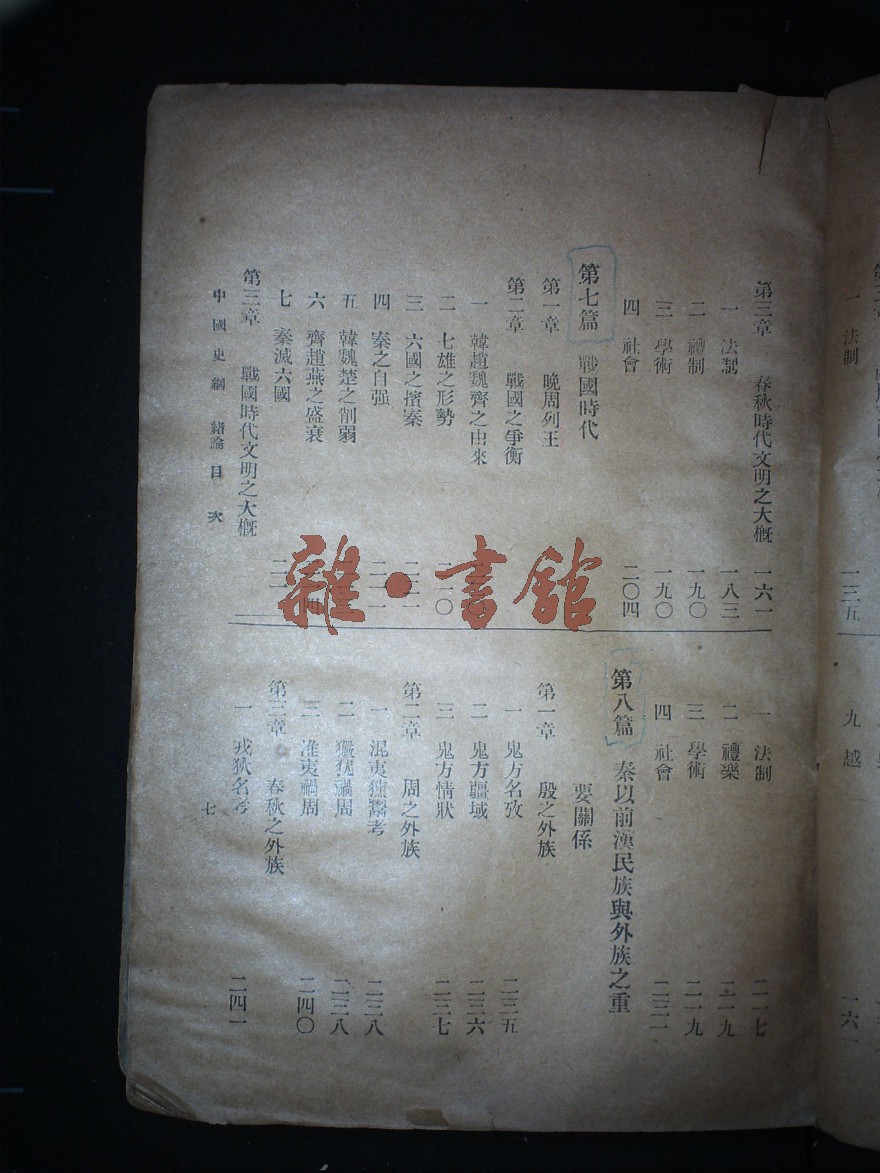 第三章　春秋時代文明之大概　一六一
一　法制　一八三
二　禮制　一九〇
三　學術　一九〇
四　社會　二〇四
第七篇　戰國時代
第一章　晚周列王
第二章　戰國之爭衡
一　韓趙魏齊之由來
二　七雄之形勢
三　六國之擯秦
四　秦之自强
五　韓魏楚之削弱
六　齊趙燕之盛衰
七　秦滅六國
第三章　戰國時代文明之大概
一　法制　二一七
二　禮樂　二一九
三　學術　二一九
四　社會
第八篇　秦以前漢民族與外族之重
要關係
第一章　殷之外族
一　鬼方名攷　二三五
二　鬼方疆域　二三六
三　鬼方情狀　二三七
第二章　周之外族
一　混夷獯鬻考　二三八
二　玁狁禍周　二三八
三　淮夷禍周　二四〇
第三章　春秋之外族
一　戎狄名考　二四一
中國史綱　緒論　目次　七
雜·書館
一　法制　一三五
九　越　一六一